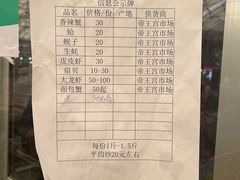 信息公示牌
品名 价格/份 产地 供货商
香辣蟹 30 帝王宫市场
蛤 20 帝王宫市场
蚬子 20 帝王宫市场
生蚝 20 帝王宫市场
皮皮虾 30 帝王宫市场
扇贝 10-30 帝王宫市场
大龙虾 50-100 帝王宫市场
面包蟹 50起 帝王宫市场
每份1斤-1.5斤
平均炒20元左右